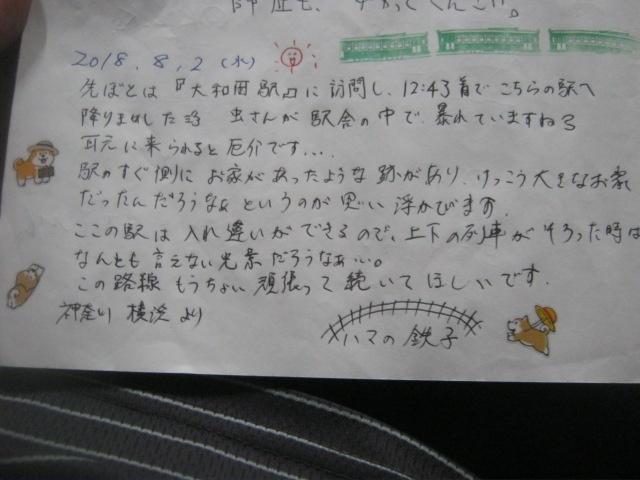 2018.8.2 (木)
先ほどは『大和田駅』に訪問し、12:43着で こちらの駅へ
降りました 虫さんが 駅舎の中で、暴れていますねる
耳元に来られると厄介です....
駅のすぐ側に お家があったような 跡があり、けっこう大きなお家
だったんだろうなぁ というのが 思い 浮かびます.
ここの駅は 入れ違いが できるので、上下の列車が そろった時は
なんとも 言えない 光景 だろうなぁ…。
この 路線 もうちょい 頑張って 続いて ほしいです.
神奈川 横浜 より
ハマの 鉄子